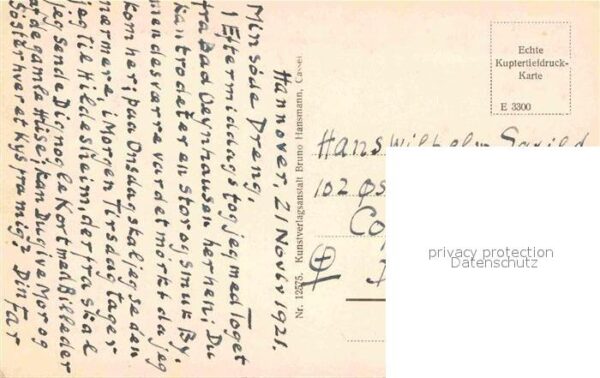 Hannover, 21 Novbr 1921.
Min søde Dreng,
I Eftermiddags tog jeg med Toget
fra Bad Oeynhausen her hen; Du
kan tro det er en stor og smuk By,
men desværre var det mørkt da jeg
kom her; paa Onsdag skal jeg se den
nærmere, i Morgen Tirsdag tager
jeg til Hildesheim, derfra skal
jeg sende Dig nogle Kort med Billeder
af de gamle Huse; kan Du give Mor og
Søster hver et Kys fra mig? Din Far
Nr. 12575. Kunstverlagsanstalt Bruno Hansmann, Cassel
Echte
Kupfertiefdruck-
Karte
E 3300
Hans Wilhelm
102 Øs
Co
privacy protection
Datenschutz